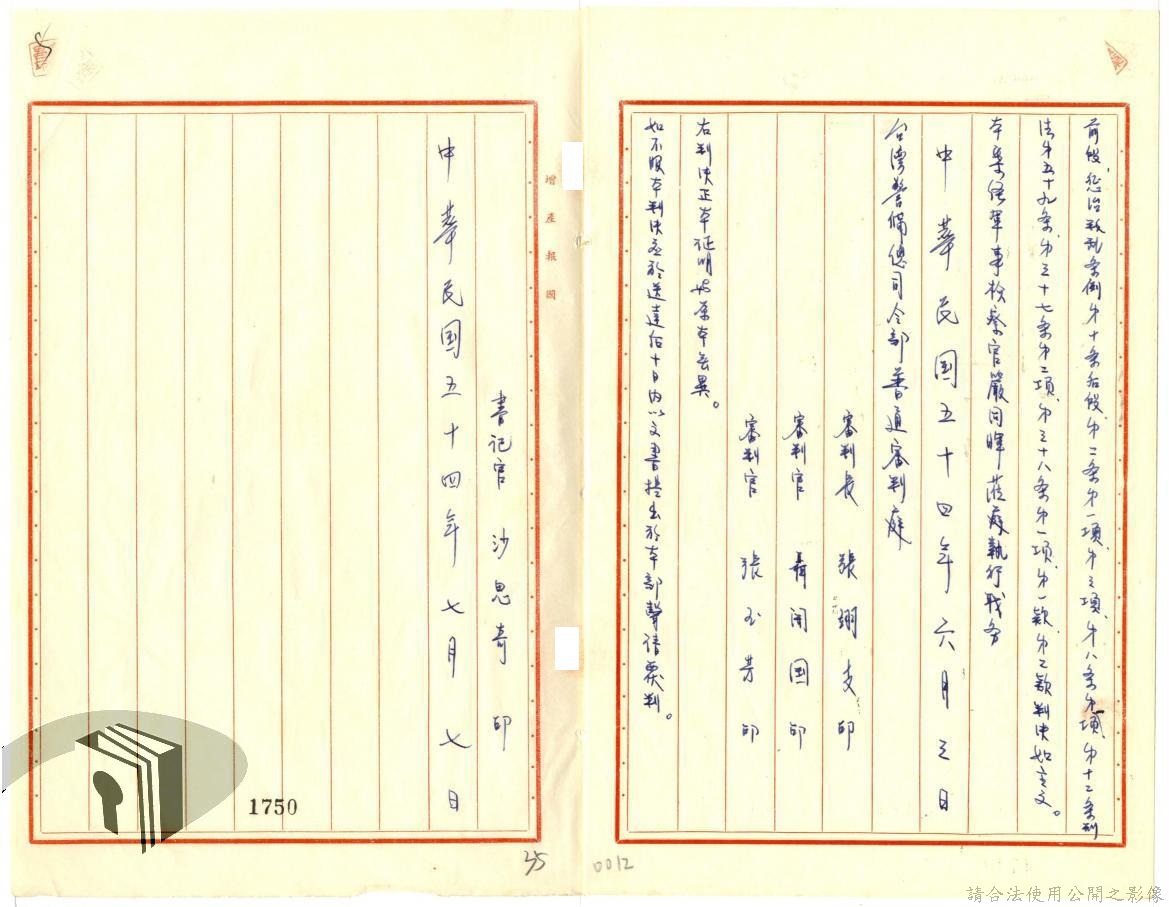 前段，惩治叛乱条例第十条后段、第二条第一項、第三項、第八条第一項、第十二条刑
法第五十九条、第三十七条第二項、第三十八条第一項、第一款、第二款判决如主文。
本案経軍事検察官嚴同暉蒞庭執行职务
中華民国五十四年六月三日
台湾警備總司令部普通審判庭
審判長 張翊支 印
審判官 聶開國 印
審判官 張玉芳 印
右判决正本証明与原本無異。
如不服本判决应於送達后十日内以文書提出於本部聲请覆判。
增產報國
書记官 沙思奇 印
中華民国五十四年七月七日
1750
35
0012
請合法使用公開之影像